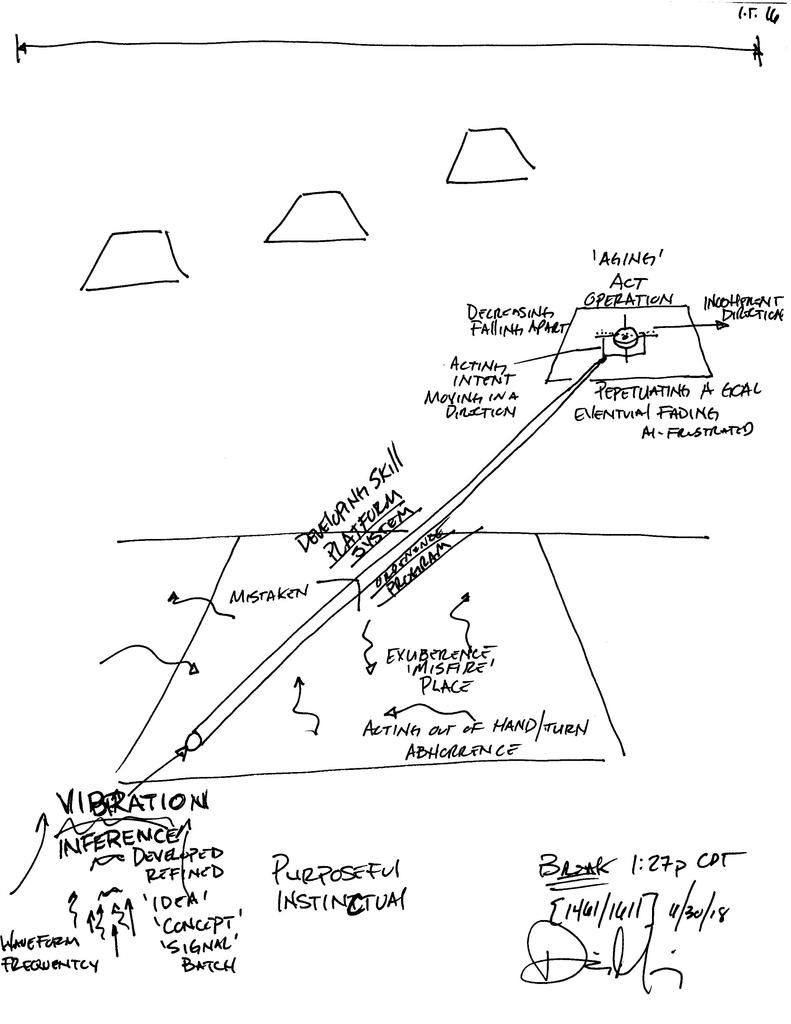 1.5. 16
'AGING'
ACT
OPERATION
DECREASING
FALLING APART
INCOHERENT
DIRECTION
ACTING
INTENT
MOVING IN A
DIRECTION
PEPETUATING A GOAL
EVENTUAL FADING
AI-FRUSTRATED
DEVELOPING SKILL
PLATFORM
SYSTEM
PROGRAM
MISTAKEN
EXUBERENCE
'MISFIRE'
PLACE
ACTING OUT OF HAND/TURN
ABHORRENCE
VIBRATION
INFERENCE
DEVELOPED
REFINED
'IDEA'
'CONCEPT'
'SIGNAL'
BATCH
WAVEFORM
FREQUENCY
PURPOSEFUL
INSTINCTUAL
BREAK 1:27P CDT
[1461/1611] 11/30/18